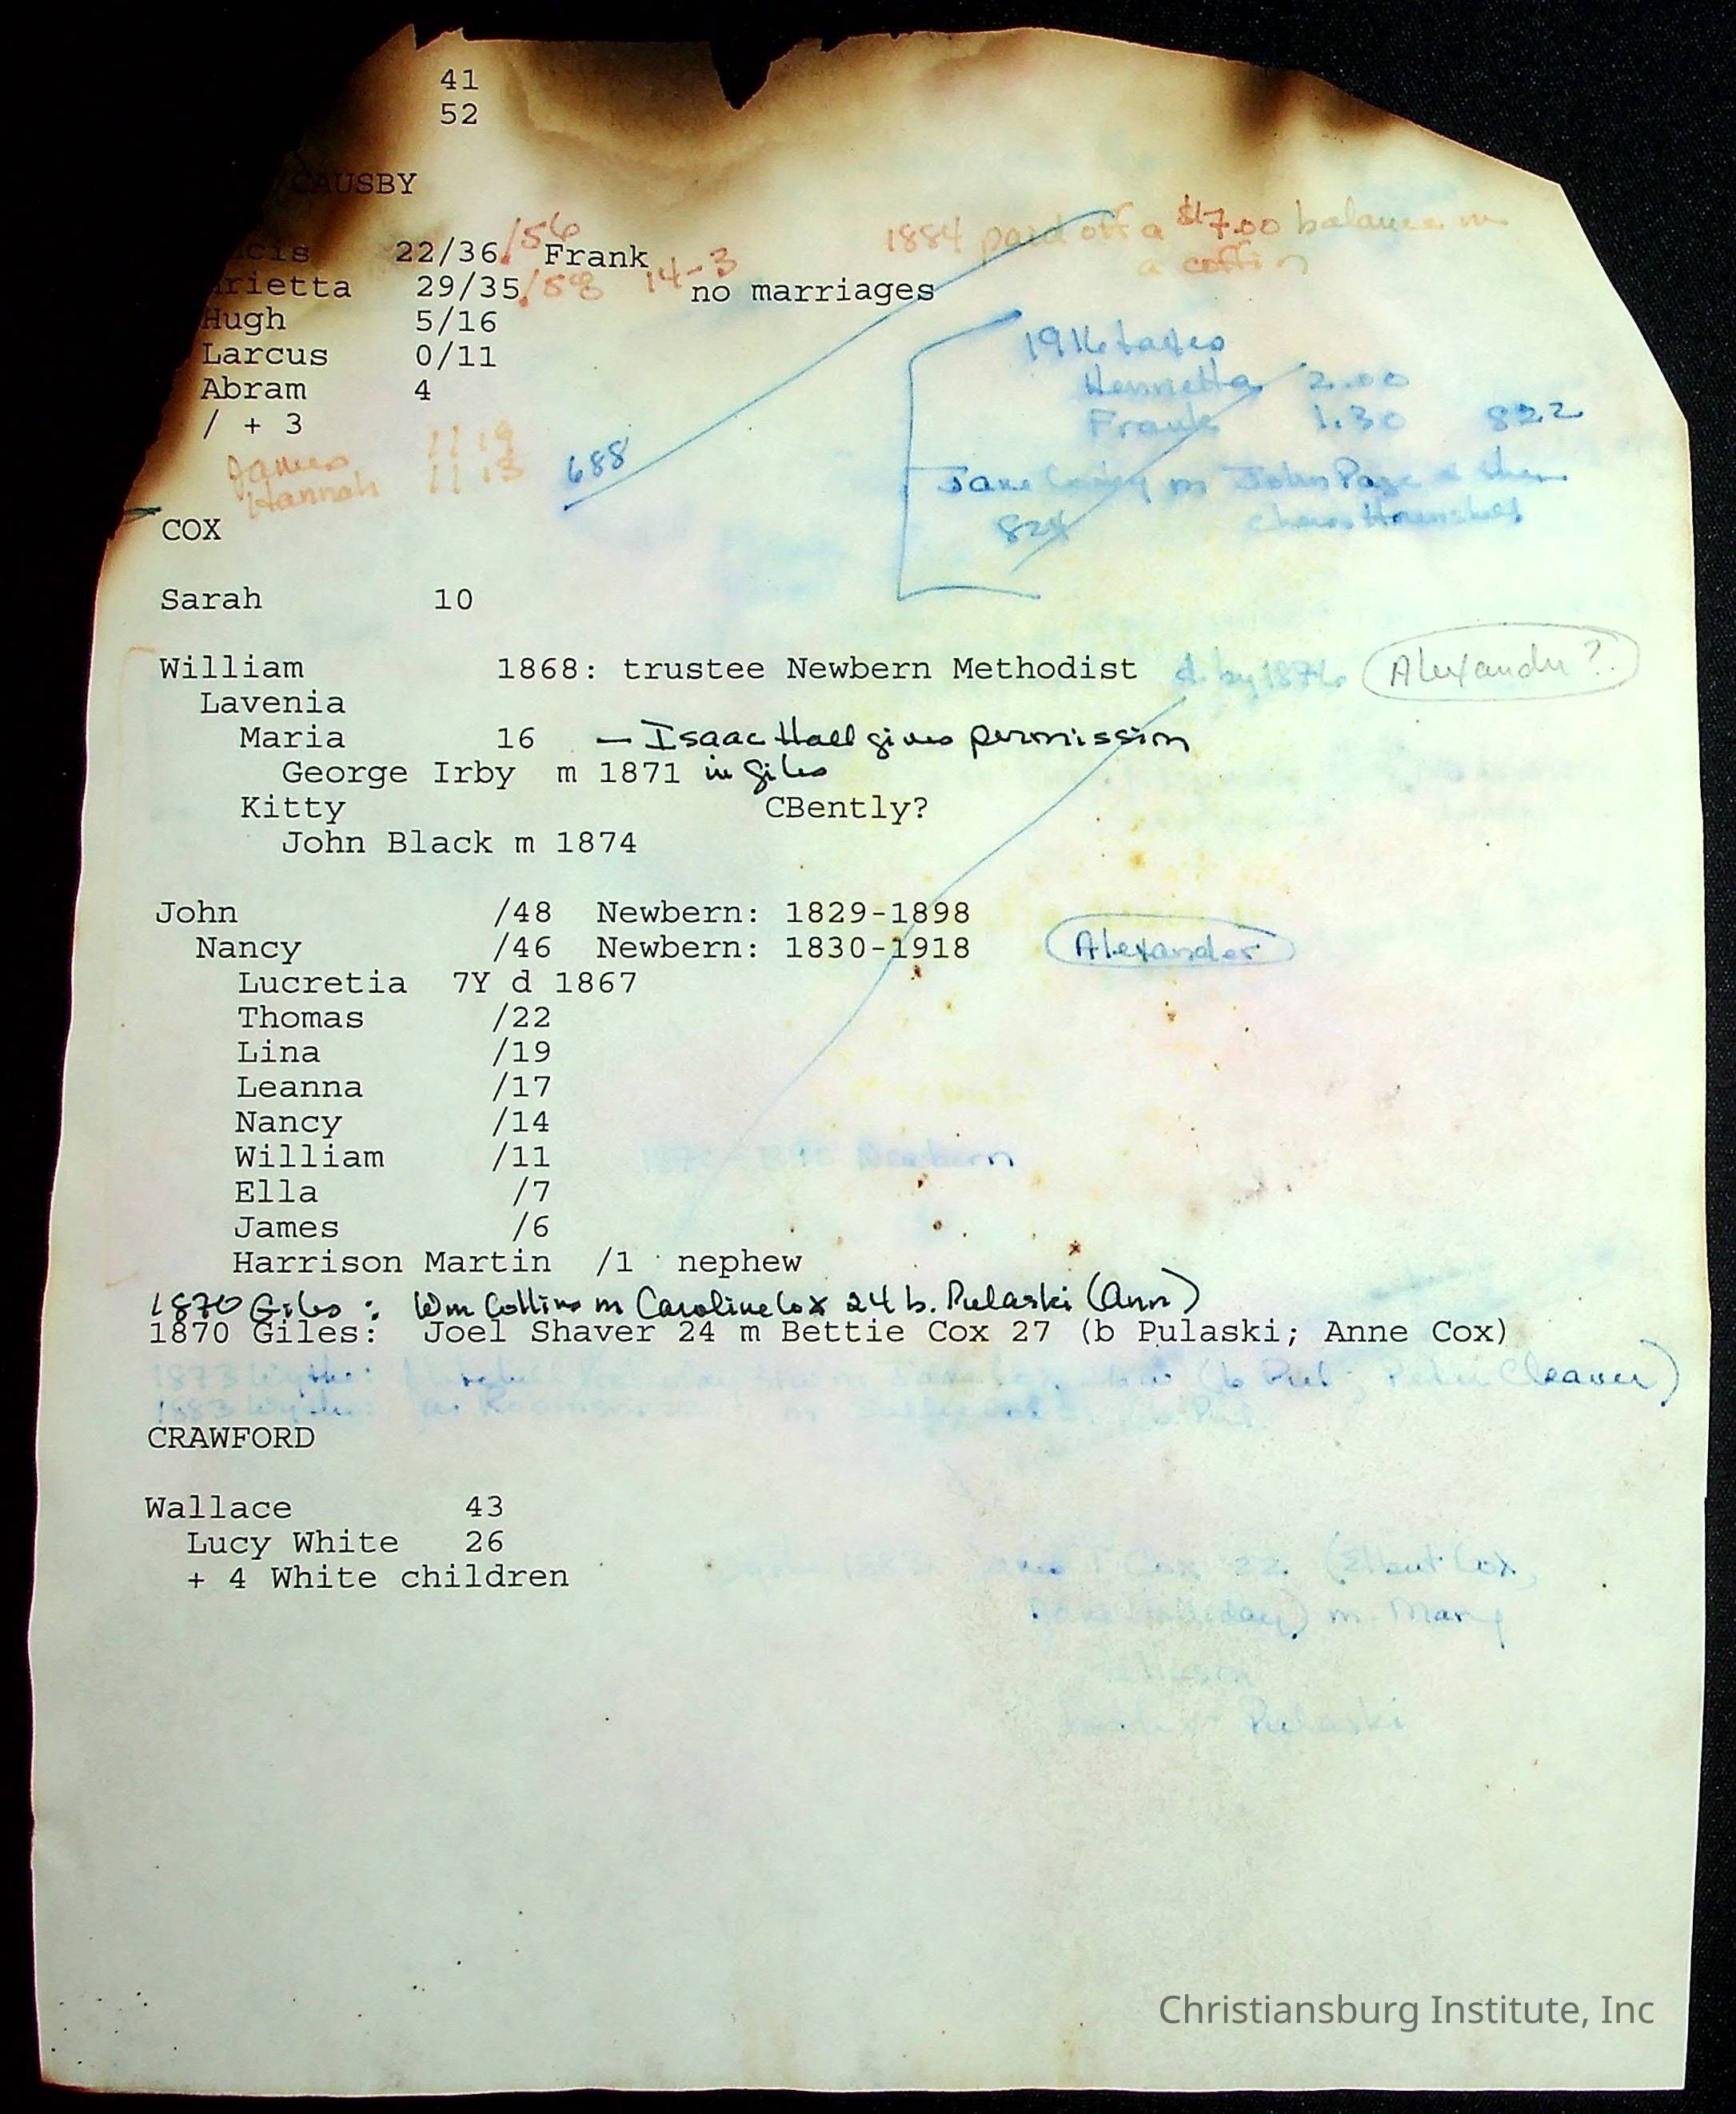 41
52
CAUSBY
cis 22/36/56 Frank
rietta 29/35/58 14-3 no marriages
1884 paid off a $17.00 balance on
a coffin
Hugh 5/16
Larcus 0/11
Abram 4
/ + 3
James 11 19
Hannah 11 13
688
1916 taxes
Henrietta 2.00
Frank 1.30 822
Jane m John Page & then
828
COX
Sarah 10
William 1868: trustee Newbern Methodist d. by 1876 Alexander?
Lavenia
Maria 16 — Isaac Hall gives permission
George Irby m 1871 in Giles
Kitty CBently?
John Black m 1874
John /48 Newbern: 1829-1898
Nancy /46 Newbern: 1830-1918 Alexander
Lucretia 7Y d 1867
Thomas /22
Lina /19
Leanna /17
Nancy /14
William /11 Newbern
Ella /7
James /6
Harrison Martin /1 nephew
1870 Giles: Wm Collins m Caroline Cox 24 b. Pulaski (Ann)
1870 Giles: Joel Shaver 24 m Bettie Cox 27 (b Pulaski; Anne Cox)
1873 Wythe: (b Pul; Cleaver)
1883 Wythe:
CRAWFORD
Wallace 43
Lucy White 26
+ 4 White children
T Cox 22 Cox,
m. Mary
Pulaski
Christiansburg Institute, Inc